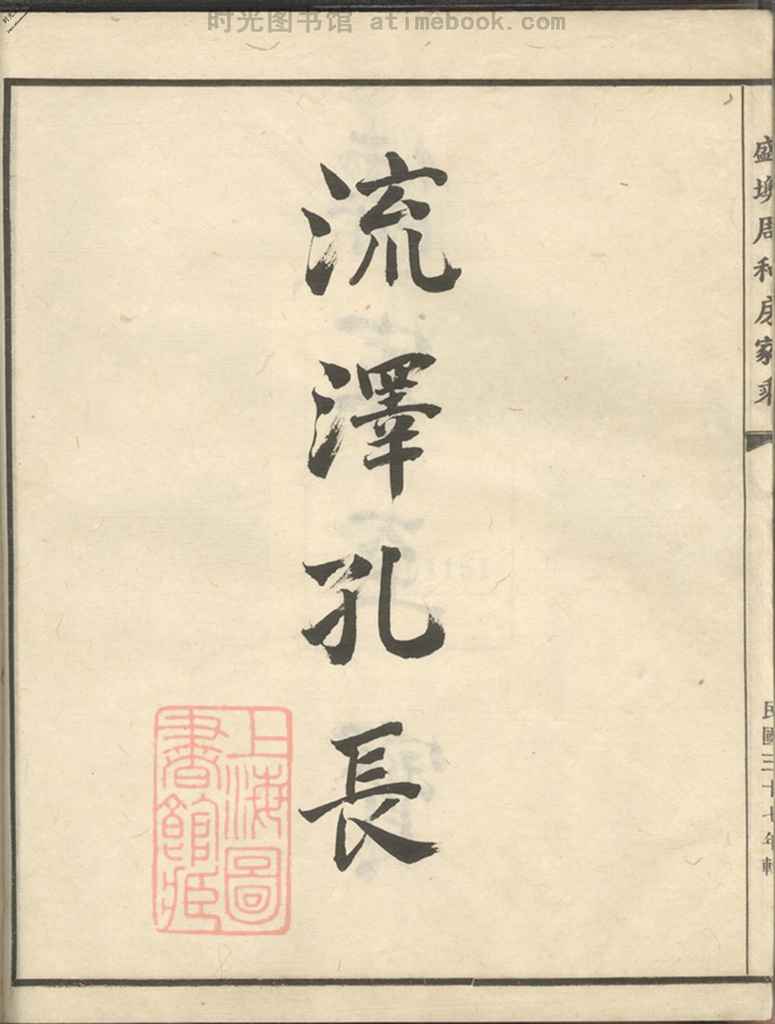 时光图书馆 atimebook.com
盛墺周利房家乘
民國三十七年輯
流澤孔長
上海圖
書館藏